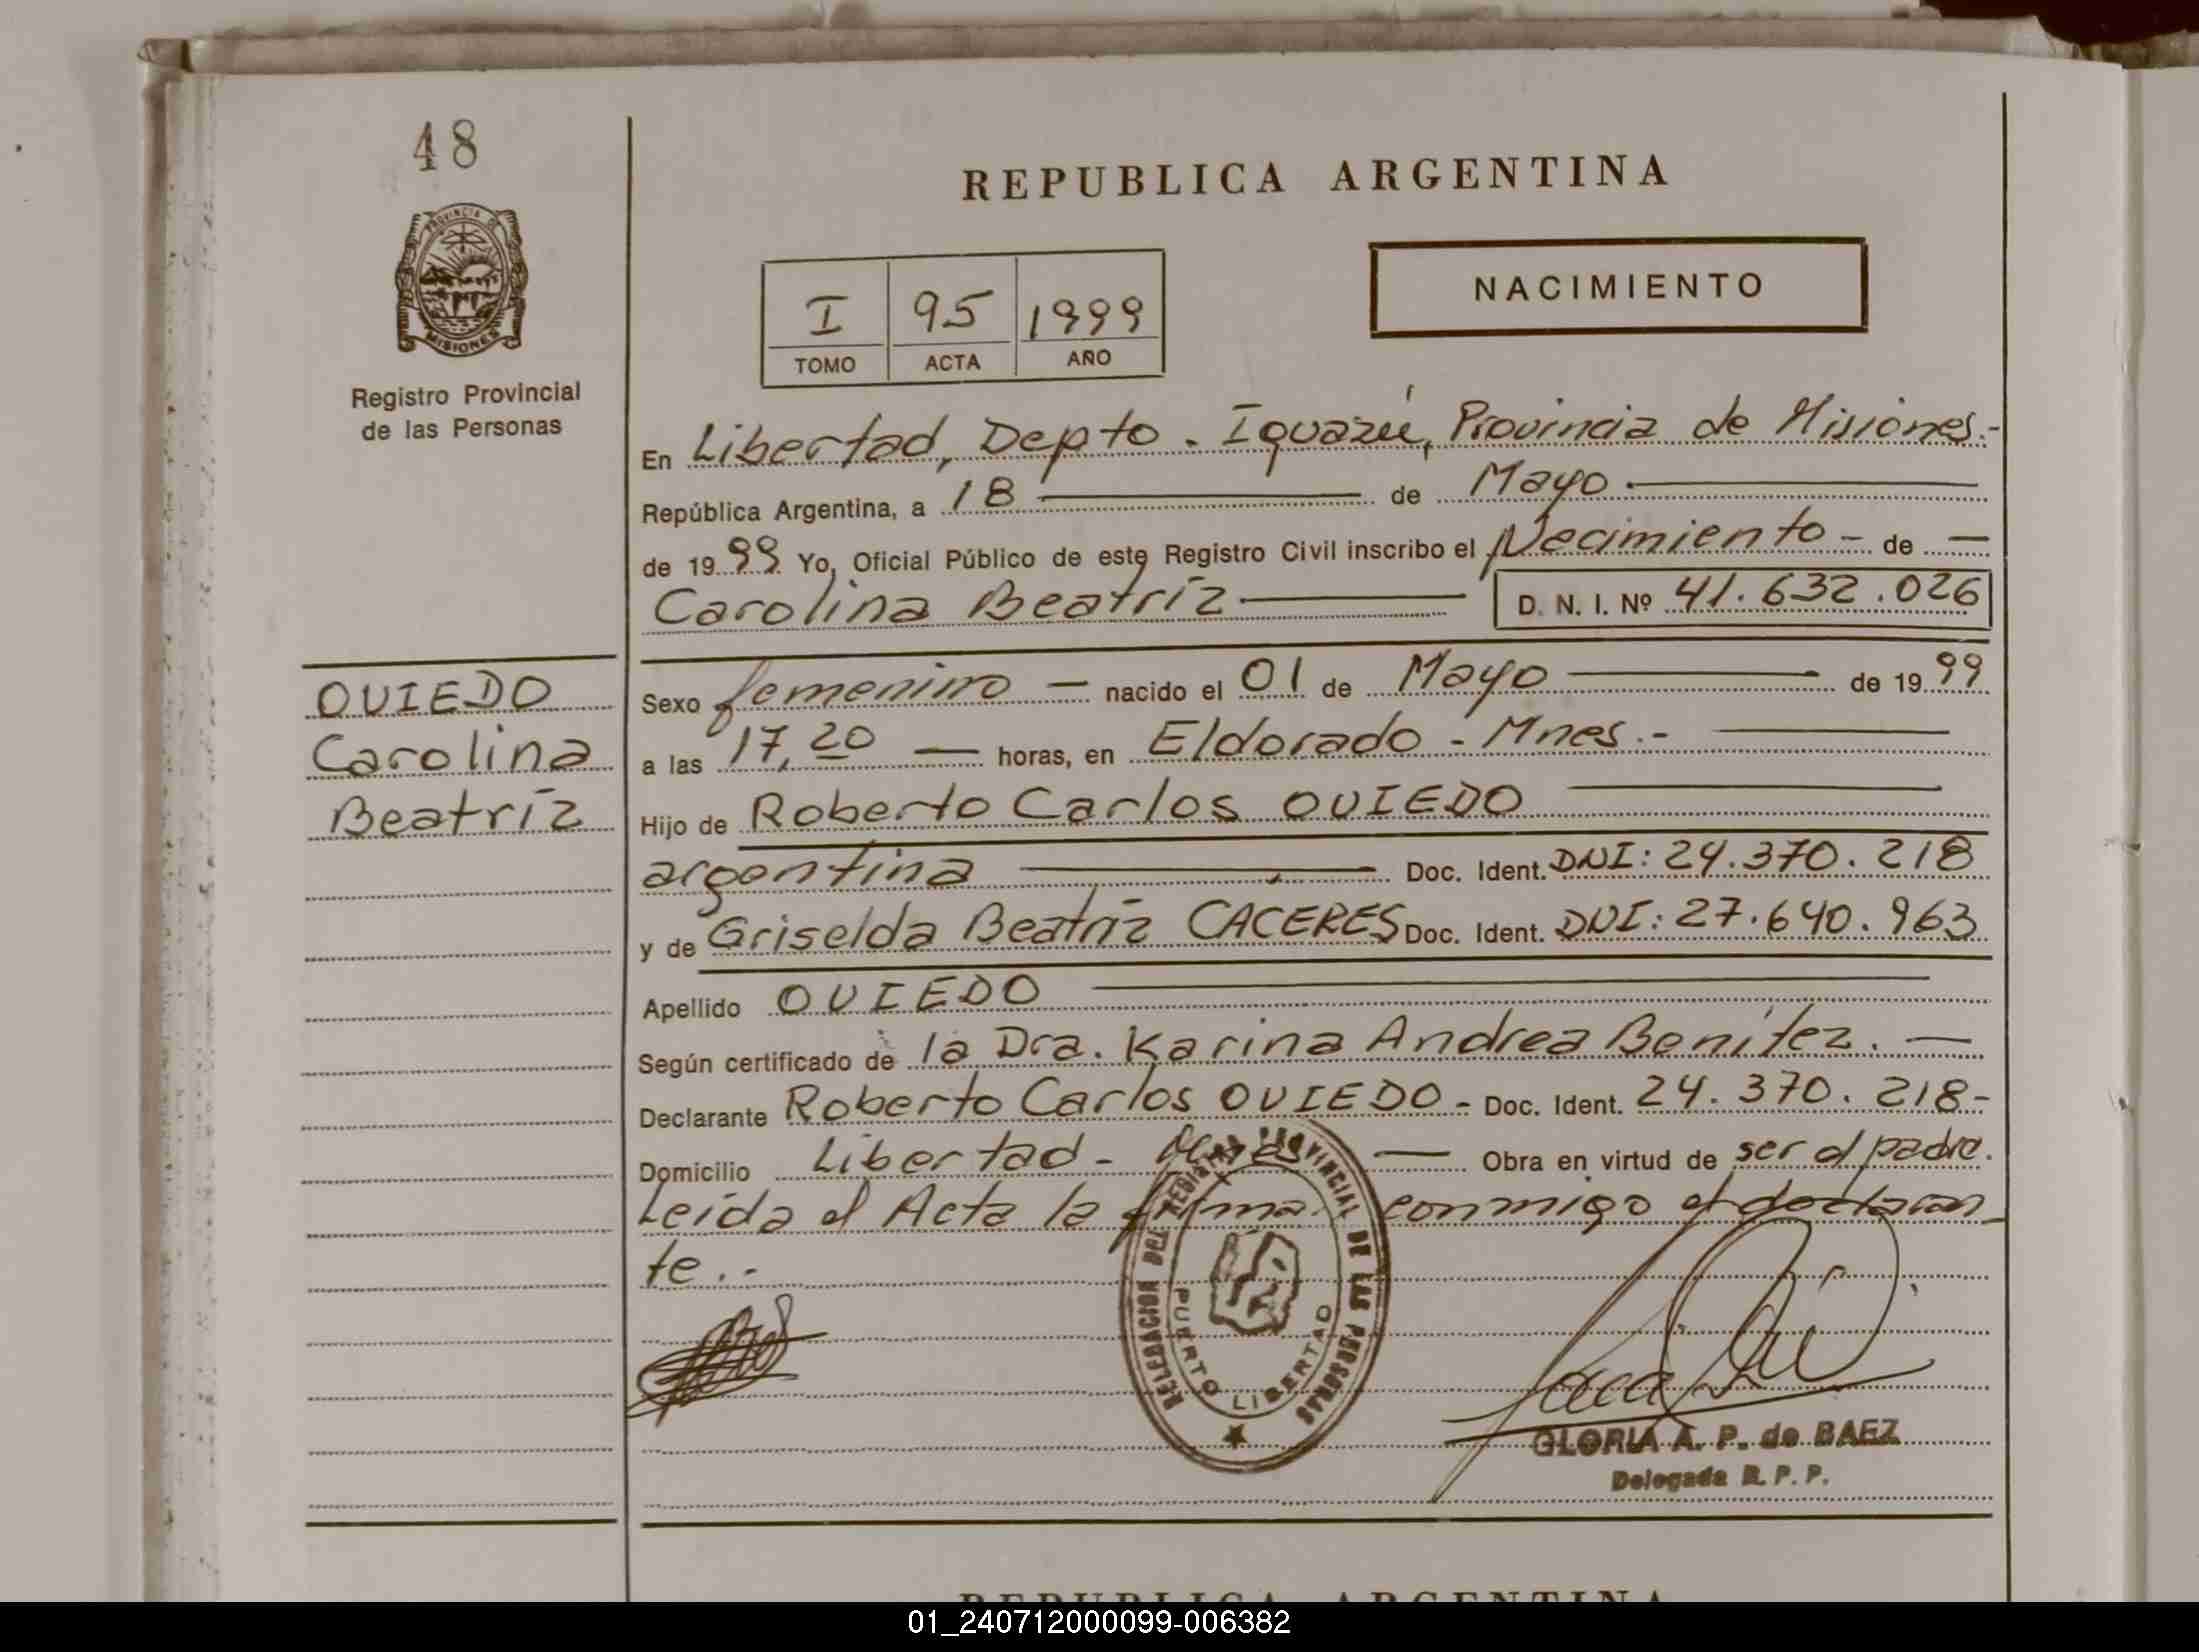 48
REPUBLICA ARGENTINA
PROVINCIA DE
MISIONES
NACIMIENTO
I 95 1999
TOMO ACTA AÑO
Registro Provincial
de las Personas
En Libertad, Depto. Iguazú, Provincia de Misiones.-
República Argentina, a 18 — de Mayo.—
de 1999 Yo, Oficial Público de este Registro Civil inscribo el Nacimiento - de —
Carolina Beatríz — D. N. I. Nº 41.632.026
OVIEDO
Carolina
Beatríz
Sexo femenino — nacido el 01 de Mayo — de 1999
a las 17,20 — horas, en Eldorado - Mnes.- —
Hijo de Roberto Carlos OVIEDO —
argentina — Doc. Ident. DNI: 24.370.218
y de Griselda Beatríz CACERES Doc. Ident. DNI: 27.640.963
Apellido OVIEDO —
Según certificado de la Dra. Karina Andrea Benítez. —
Declarante Roberto Carlos OVIEDO - Doc. Ident. 24.370.218-
Domicilio Libertad - — Obra en virtud de ser el padre.
Leída el Acta la firma conmigo el declaran-
te.-
DELEGACION DEL REGISTRO PROVINCIAL DE LAS PERSONAS
PUERTO LIBERTAD
GLORIA A. P. de BAEZ
Delegada R. P. P.
REPUBLICA ARGENTINA
01_240712000099-006382